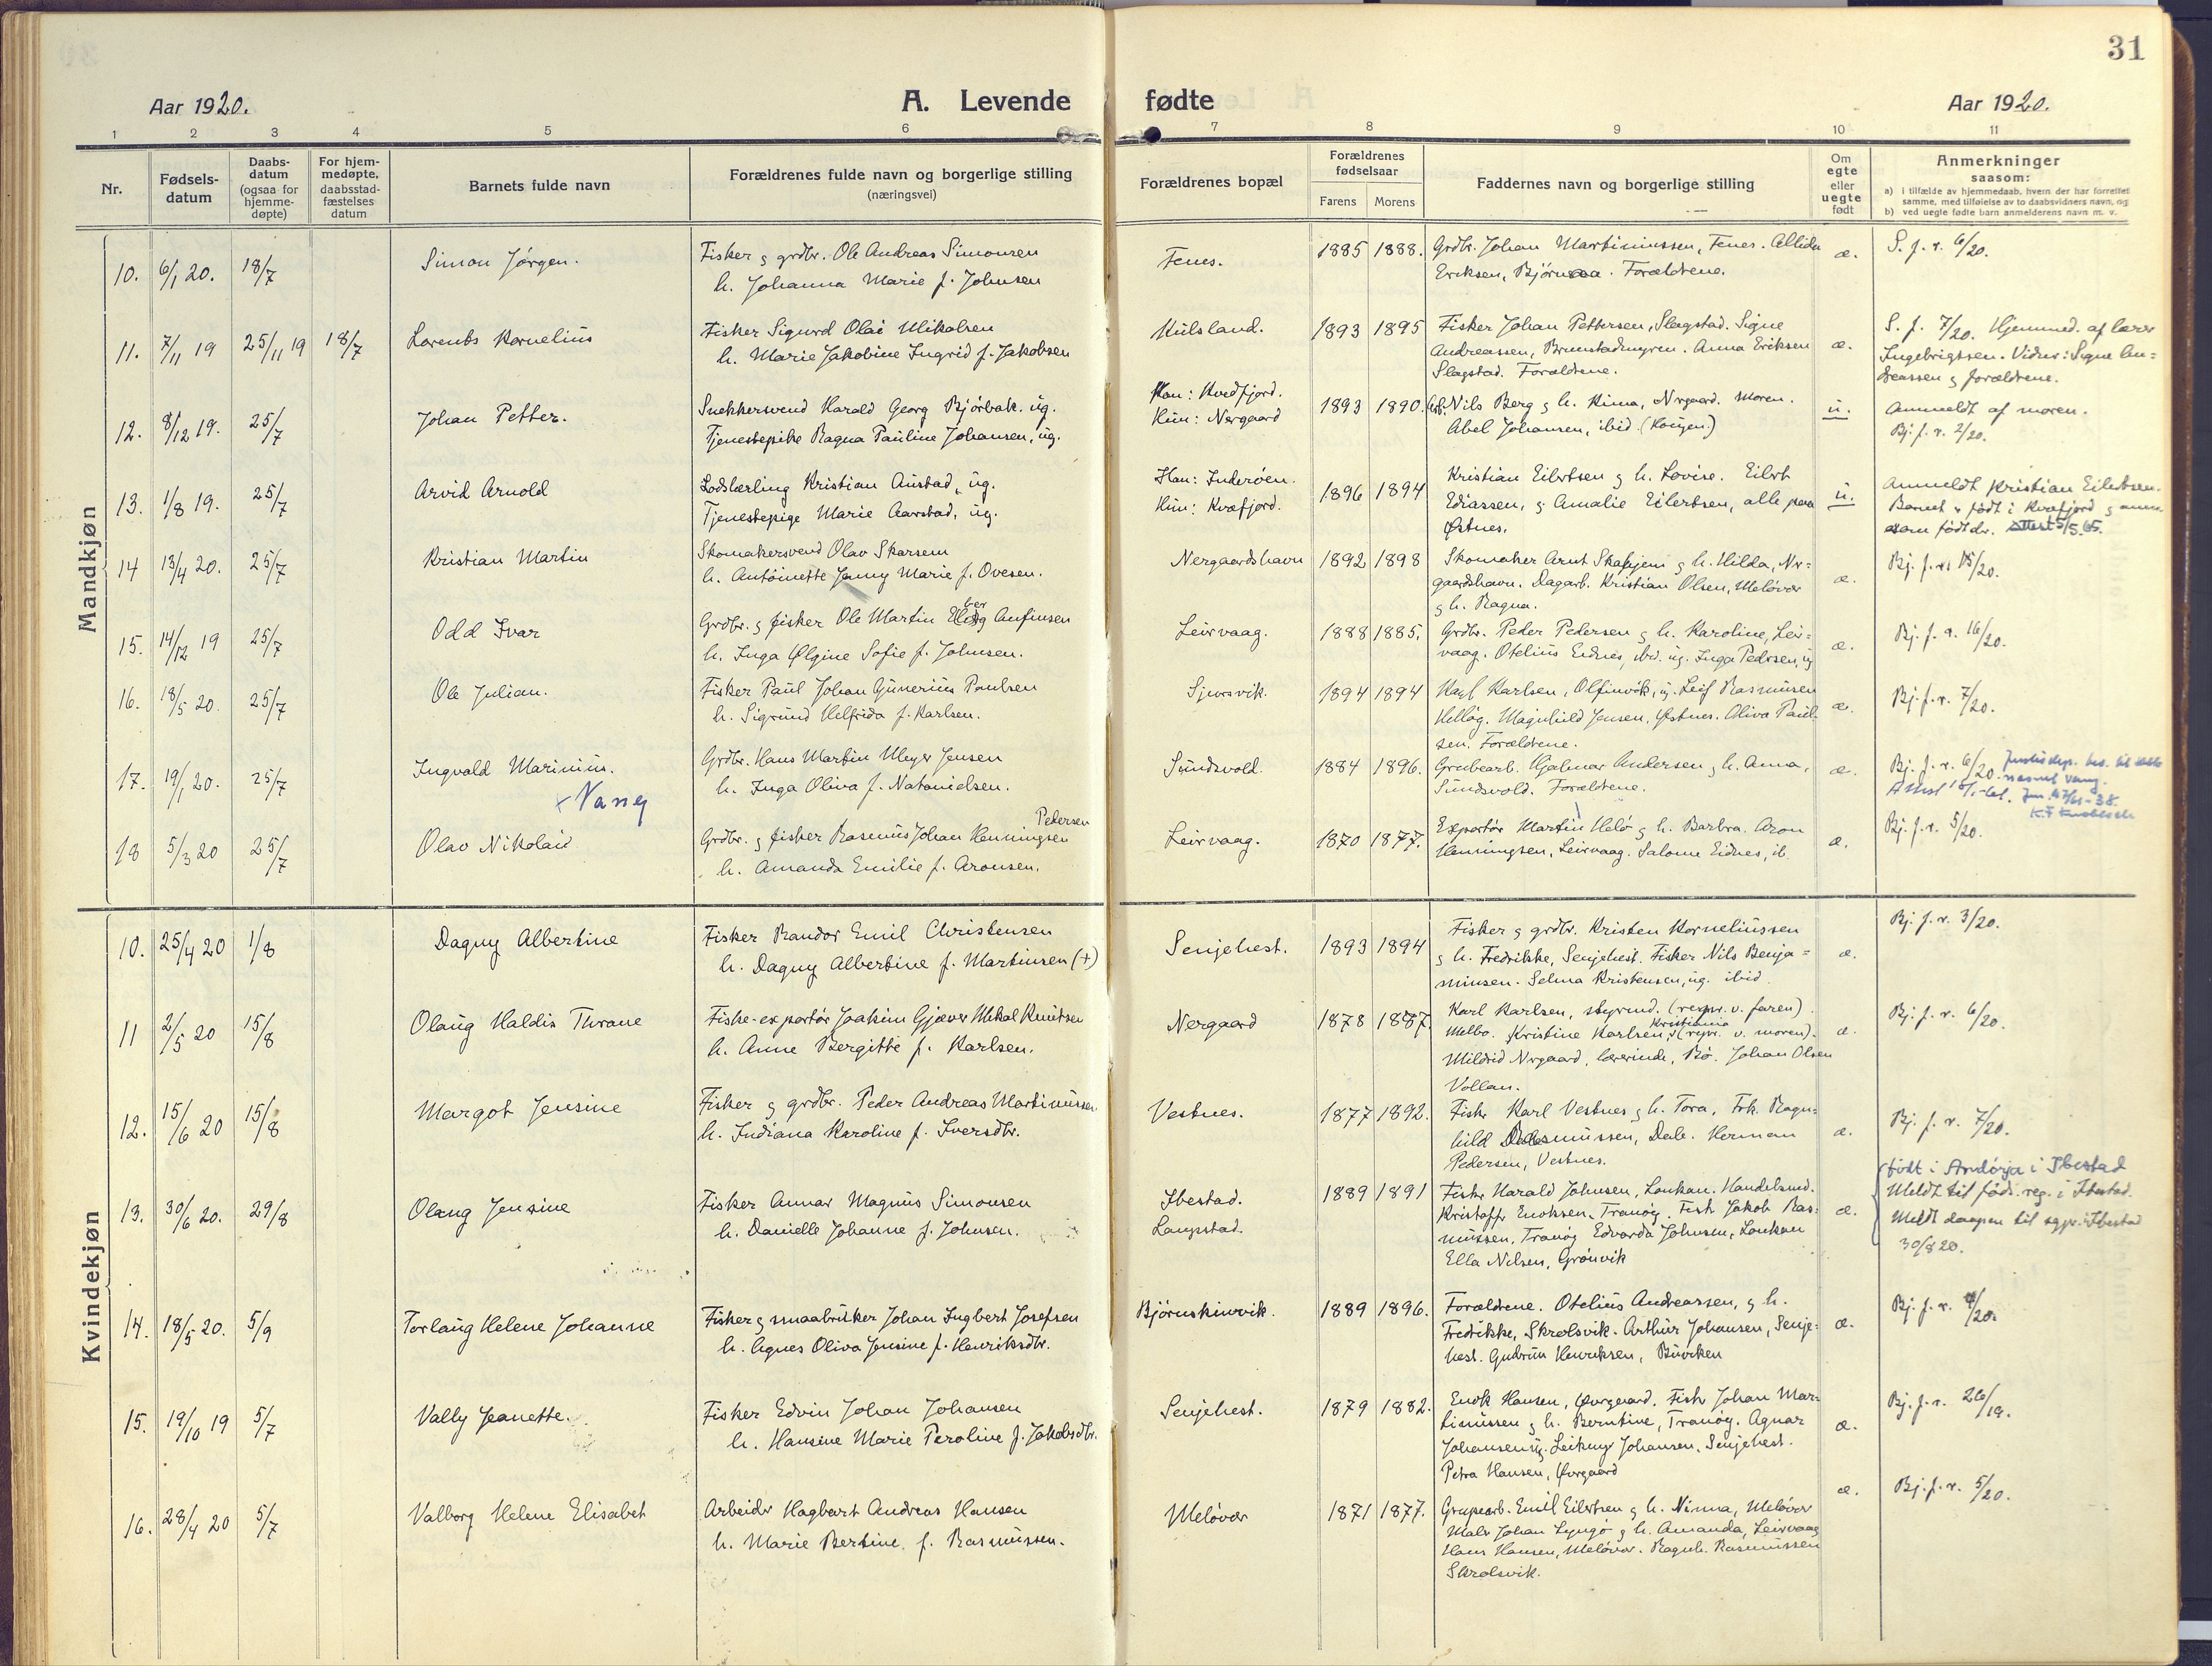 31
Aar 1920.
A. Levende fødte
Aar 1920.
1 2 3 4 5 6 7 8 9 10 11
Nr.
Fødsels-
datum
Daabs-
datum
(ogsaa for
hjemme-
døpte)
For hjem-
medøpte,
daabsstad-
fæstelses
datum
Barnets fulde navn
Forældrenes fulde navn og borgerlige stilling
(næringsvei)
Forældrenes bopæl
Forældrenes
fødselsaar
Farens Morens
Faddernes navn og borgerlige stilling
Om
egte
eller
uegte
født
Anmerkninger
saasom:
a) i tilfælde av hjemmedaab, hvem der har forrettet
samme, med tilføielse av to daabsvidners navn, og
b) ved uegte fødte barn anmelderens navn m. v.
Mandkjøn
10. 6/1 20. 18/7
Simon Jørgen.
Fisker & grdbr. Ole Andreas Simonsen
h. Johanna Marie f. Johnsen
Fenes.
1885 1888.
Grdbr. Johan Martinussen, Fenes. Allida
Eriksen, Bjørnraa. Forældrene.
æ.
S. f. r. 6/20.
11. 7/11 19 25/11 19 18/7
Lorents Kornelius
Fisker Sigurd Olai Nikolsen
h. Marie Jakobine Ingrid f. Jakobsen
Kulsland.
1893 1895
Fisker Johan Pettersen, Slagstad. Signe
Andreassen, Brunstadmyren. Anna Eriksen
Slagstad. Forældrene.
æ.
S. f. 7/20. Hjemmed. af lærer
Ingebrigtsen. Vidner: Signe An=
dreassen & forældrene.
12. 8/12 19. 25/7
Johan Petter.
Snekkersvend Harald Georg Bjørbak. ug.
Tjenestepike Ragna Pauline Johansen, ug.
Han: Kvedfjord.
Hun: Nergaard
1893 1890.
Arb. Nils Berg & h. Kima, Nergaard. Moren.
Abel Johansen, ibid. (Kongen)
u.
Anmeldt af moren.
Bj. f. r. 2/20.
13. 1/8 19. 25/7
Arvid Arnold
Lodslærling Kristian Austad, ug.
Tjenestepige Marie Aarstad, ug.
Han: Inderøen.
Hun: Kvæfjord.
1896 1894
Kristian Eilertsen & h. Lovise. Eilert
Ediassen, & Amalie Eilertsen, alle paa
Østnes.
u.
Anmeldt Kristian Eilertsen.
Barnet er født i Kvæfjord & anm.
som født dr. Attest 5/5.65.
14 13/4 20. 25/7
Kristian Martin
Skomakersvend Olav Skarsem
h. Antoinette Jenny Marie f. Ovesen.
Nergaardshavn
1892 1898
Skomaker Arnt Skasjem & h. Hilda, Ner=
gaardshavn. Dagarb. Kristian Olsen, Meløvær
& h. Ragna.
æ.
Bj. f. r. 15/20.
15. 14/12 19 25/7
Odd Ivar
Grdbr. & fisker Ole Martin Anfinsen
h. Inga Ølgine Sofie f. Johnsen.
Leirvaag.
1888 1885.
Grdbr. Peder Pedersen & h. Karoline, Leir=
vaag. Otelius Eidnes, ibid. ug. Inga Pedersen, ug
æ.
Bj. f. a. 16/20.
16. 18/5 20. 25/7
Ole Julian.
Fisker Paul Johan Gunerius Paulsen
h. Sigrund Helfrida f. Karlsen.
Sjursvik.
1894 1894
Karl Karlsen, Olfinvik, ug. Leif Rasmussen
Helløg. Magnhild Jensen, Østnes. Oliva Paul-
sen. Forældrene.
æ.
Bj. f. r. 7/20.
17. 19/1 20. 25/7
Ingvald Marinius.
x Vang
Grdbr. Hans Martin Meyer Jensen
h. Inga Oliva f. Natanielsen.
Sundsvold.
1884 1896.
Grubearb. Hjalmar Andersen & h. Anna,
Sundsvold. Forældrene.
æ.
Bj. f. r. 6/20.
18 5/3 20 25/7
Olav Nikolai
Pedersen
Grdbr. & fisker Rasmus Johan Henningsen
h. Amanda Emilie f. Aronsen.
Leirvaag.
1870 1877.
Exportør Martin Helø & h. Barbra. Aron
Henningsen, Leirvaag. Salome Eidnes, ib.
æ.
Bj. f. r. 5/20.
Kvindekjøn
10. 25/4 20 1/8
Dagny Albertine
Fisker Randor Emil Christensen
h. Dagny Albertine f. Martinsen (+)
Senjehest.
1893 1894
Fisker & grdbr. Kristen Korneliussen
& h. Fredrikke, Senjehest. Fisker Nils Benja=
minsen. Selma Kristensen, ug. ibid.
æ.
Bj. f. r. 3/20.
11 2/5 20 15/8
Olaug Haldis Thrane
Fiske-exportør Joakim Gjæver Mikal Knutsen
h. Anne Bergitte f. Karlsen.
Nergaard
1878 1887.
Karl Karlsen, styrmd. (repr. v. faren).
Melbo. Kristine Karlsen, Kristiania (repr. v. moren).
Mildrid Nergaard, lærerinde, Bø. Johan Olsen
Vollan.
æ.
Bj. f. r. 6/20.
12. 15/6 20 15/8
Margot Jensine
Fisker & grdbr. Peder Andreas Martinussen
h. Indiana Karoline f. Iversdtr.
Vestnes.
1877 1892.
Fisker Karl Vestnes & h. Tora, Frk. Ragn=
hild Rasmussen, Dale. Herman
Pedersen, Vestnes.
æ.
Bj. f. r. 7/20.
13. 30/6 20. 29/8
Olaug Jensine
Fisker Annar Magnus Simonsen
h. Danielle Johanne f. Johnsen.
Ibestad.
Langstad.
1889 1891
Fisker Harald Johnsen, Lonkan. Handelsmd.
Kristoffer Enoksen, Tranøy. Fisk Jakob Ras=
mussen, Tranøy Edvarda Johnsen, Lonkan
Ella Nilsen, Grønvik
æ.
født i Andørja i Ibestad
Meldt til føds. reg. i Ibestad.
Meldt daapen til sgpr. i Ibestad
30/8 20.
14. 18/5 20. 5/9
Torlaug Helene Johanne
Fisker & smaabruker Johan Ingbert Josefsen
h. Agnes Oliva Jensine f. Henriksdtr.
Bjørnskinvik.
1889 1896.
Forældrene. Otelius Andreassen, & h.
Fredrikke, Skrolsvik. Arthur Johansen, Senje-
hest. Gudrun Henriksen, Burøken
æ.
15. 19/10 19 5/7
Vally Jeanette.
Fisker Edvin Johan Johansen
h. Hansine Marie Peroline f. Jakobsdtr.
Senjehest.
1879 1882.
Enok Hansen, Øvrgaard. Fisk Johan Mar-
tinussen & h. Berntine, Tranøy. Agnar
Johansen ug. Leikny Johansen, Senjehest.
Petra Hansen, Øvrgaard
æ.
Bj. f. r. 26/19.
16. 28/4 20 5/7
Valborg Helene Elisabet
Arbeider Hagbart Andreas Hansen
h. Marie Bertine f. Rasmussen.
Meløvær
1871 1877.
Grupearb. Emil Eilertsen & h. Ninna, Meløvær
Maler Johan Lyngø & h. Amanda, Leirvaag
Hans Hansen, Meløvær. Ragnh. Rasmussen
Skrolsvik.
æ.
Bj. f. r. 5/20.